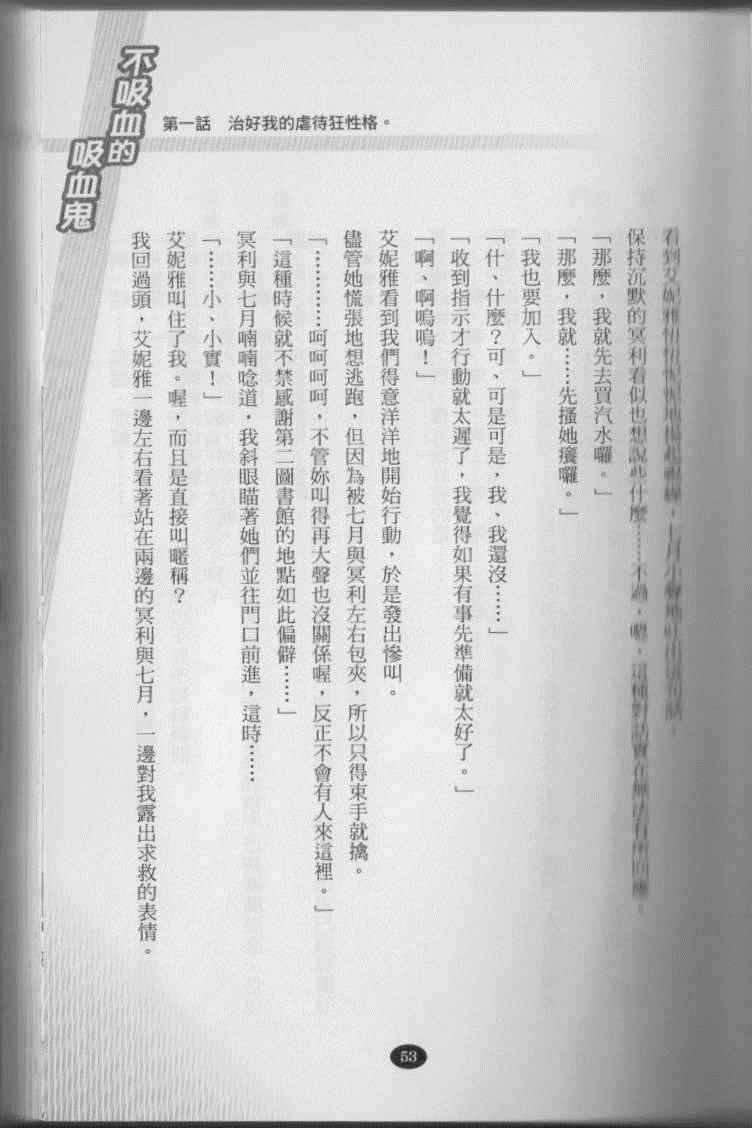 不吸血的
吸血鬼
第一話　治好我的虐待狂性格。
看到艾妮雅
保持沉默的冥利看似也想說些什麼……不過，嗯，這種對話實在無法有所回應。
「那麼，我就先去買汽水囉。」
「那麼，我就……先搔她癢囉。」
「我也要加入。」
「什、什麼？可、可是可是，我、我還沒……」
「收到指示才行動就太遲了，我覺得如果有事先準備就太好了。」
「啊、啊嗚嗚！」
艾妮雅看到我們得意洋洋地開始行動，於是發出慘叫。
儘管她慌張地想逃跑，但因為被七月與冥利左右包夾，所以只得束手就擒。
「…………呵呵呵呵，不管妳叫得再大聲也沒關係喔，反正不會有人來這裡。」
「這種時候就不禁感謝第二圖書館的地點如此偏僻……」
冥利與七月喃喃唸道，我斜眼瞄著她們並往門口前進，這時……
「……小、小實！」
艾妮雅叫住了我。喔，而且是直接叫暱稱？
我回過頭，艾妮雅一邊左右看著站在兩邊的冥利與七月，一邊對我露出求救的表情。
53